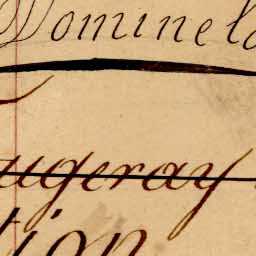 Dominel
ugeray
tion